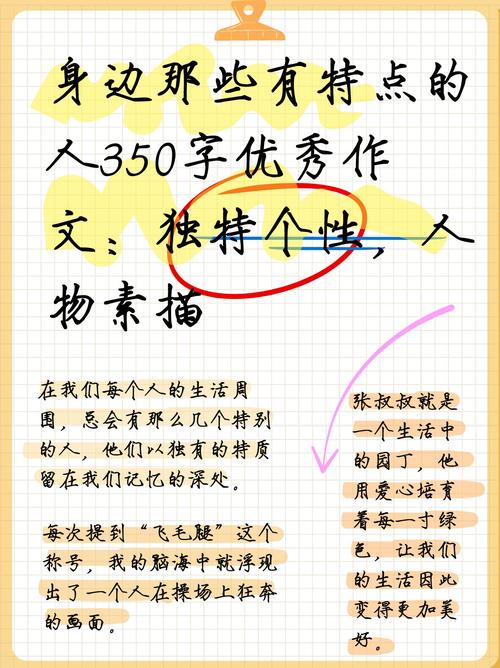 身边那些有特点的
人350字优秀作
文：独特个性，人
物素描
在我们每个人的生活周
围，总会有那么几个特别
的人，他们以独有的特质
留在我们记忆的深处。
每次提到“飞毛腿”这个
称号，我的脑海中就浮现
出了一个人在操场上狂奔
的画面。
张叔叔就是
一个生活中
的园丁，他
用爱心培育
着每一寸绿
色，让我们
的生活因此
变得更加美
好。